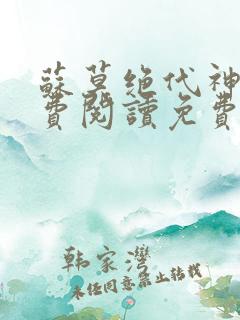 蘇莫绝代神
費閱讀免費
韩家湾
未经同意禁止转载